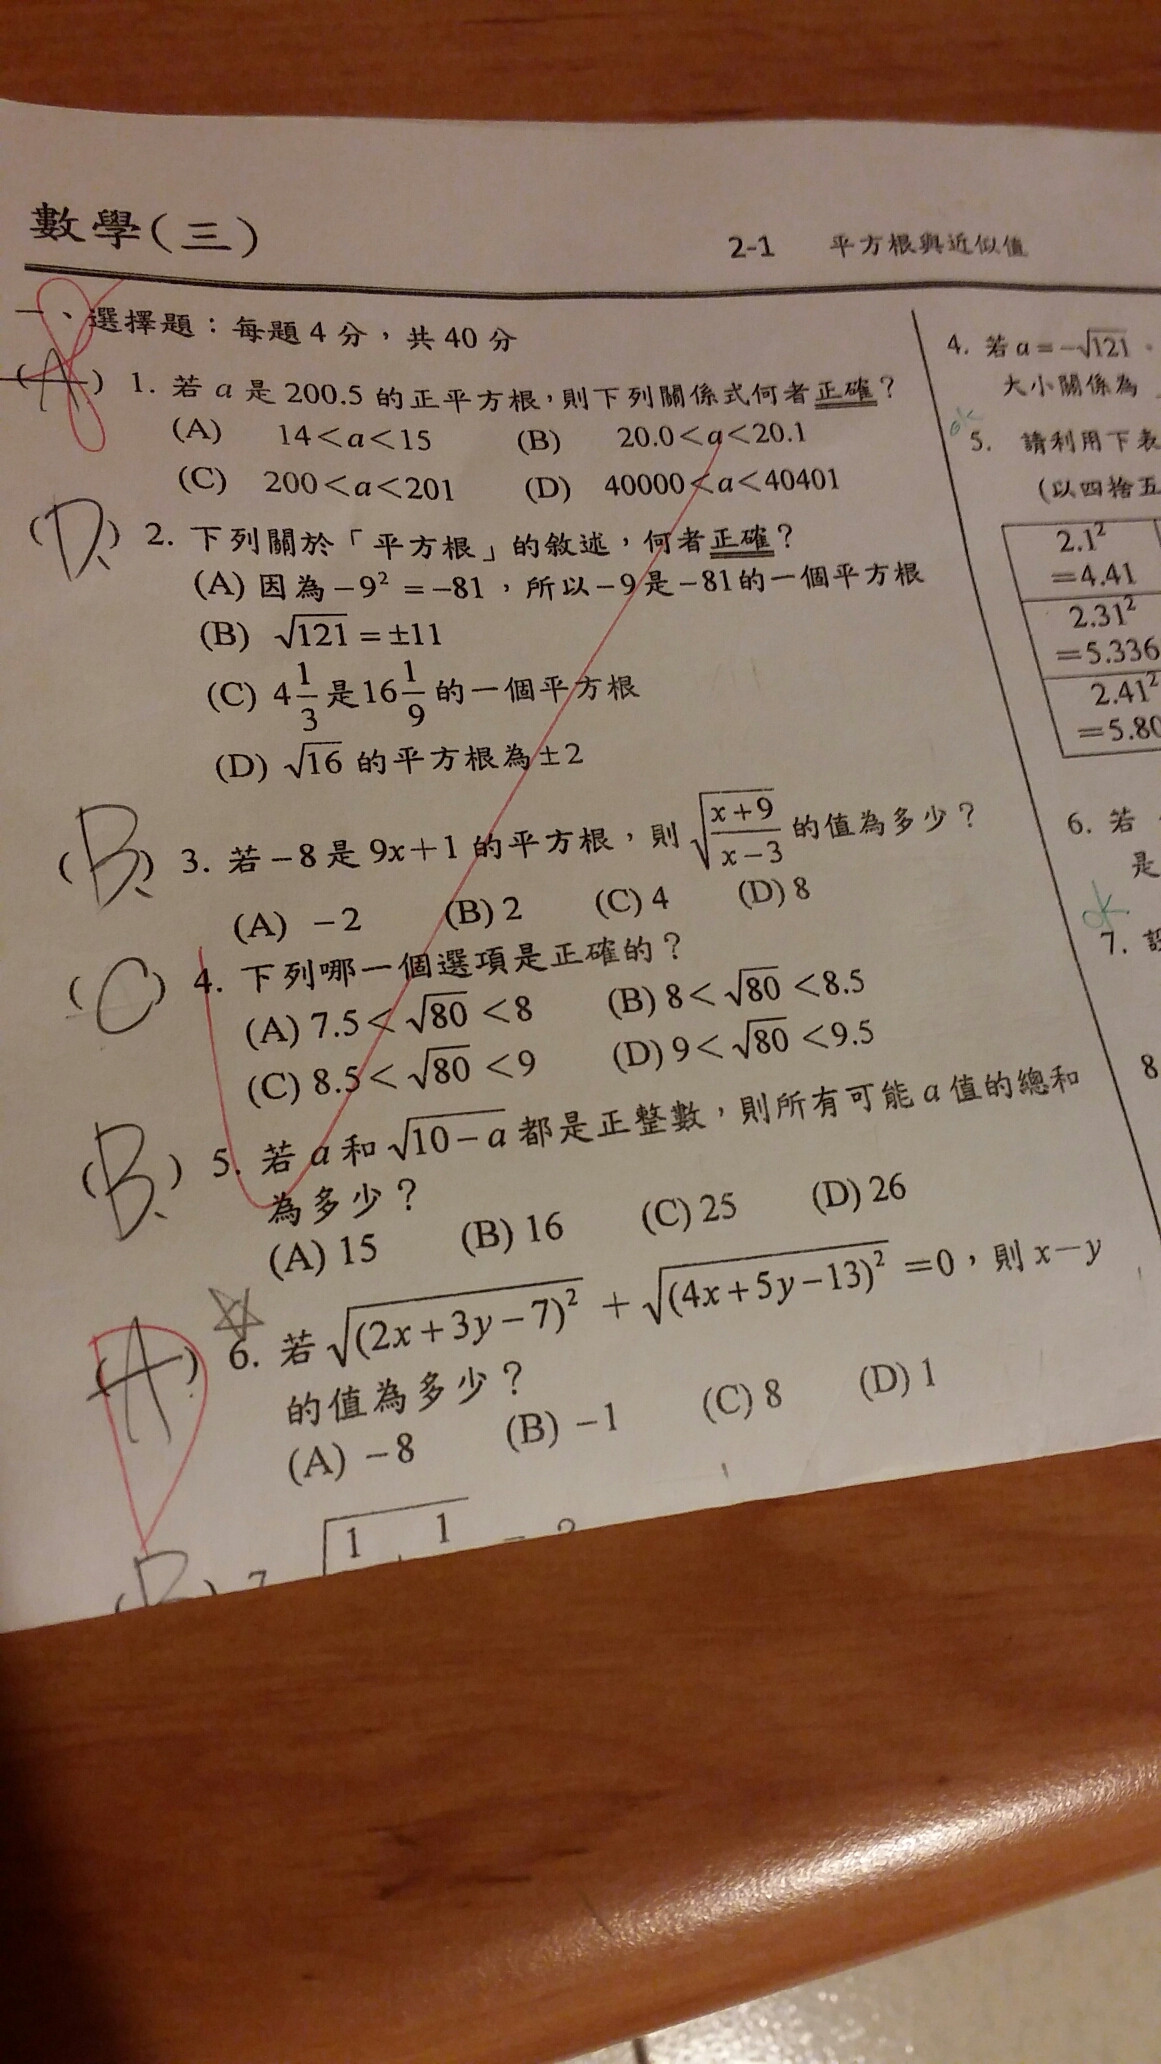 數學(三)
2-1 平方根與近似值
一、選擇題：每題4分，共40分
(A) 1. 若a是200.5的正平方根，則下列關係式何者正確？
(A) 14<a<15 (B) 20.0<a<20.1
(C) 200<a<201 (D) 40000<a<40401
(D) 2. 下列關於「平方根」的敘述，何者正確？
(A) 因為−9²=−81，所以−9是−81的一個平方根
(B) √121=±11
(C) 4 1/3是16 1/9的一個平方根
(D) √16的平方根為±2
(B) 3. 若−8是9x+1的平方根，則√((x+9)/(x−3))的值為多少？
(A) −2 (B) 2 (C) 4 (D) 8
(C) 4. 下列哪一個選項是正確的？
(A) 7.5<√80<8 (B) 8<√80<8.5
(C) 8.5<√80<9 (D) 9<√80<9.5
(B) 5. 若a和√(10−a)都是正整數，則所有可能a值的總和
為多少？
(A) 15 (B) 16 (C) 25 (D) 26
(A) 6. 若√((2x+3y−7)²)+√((4x+5y−13)²)=0，則x−y
的值為多少？
(A) −8 (B) −1 (C) 8 (D) 1
7.
4. 若a=−√121
大小關係為
5. 請利用下表
(以四捨五
2.1²
=4.41
2.31²
=5.336
2.41²
=5.80
6. 若
是
7.
8